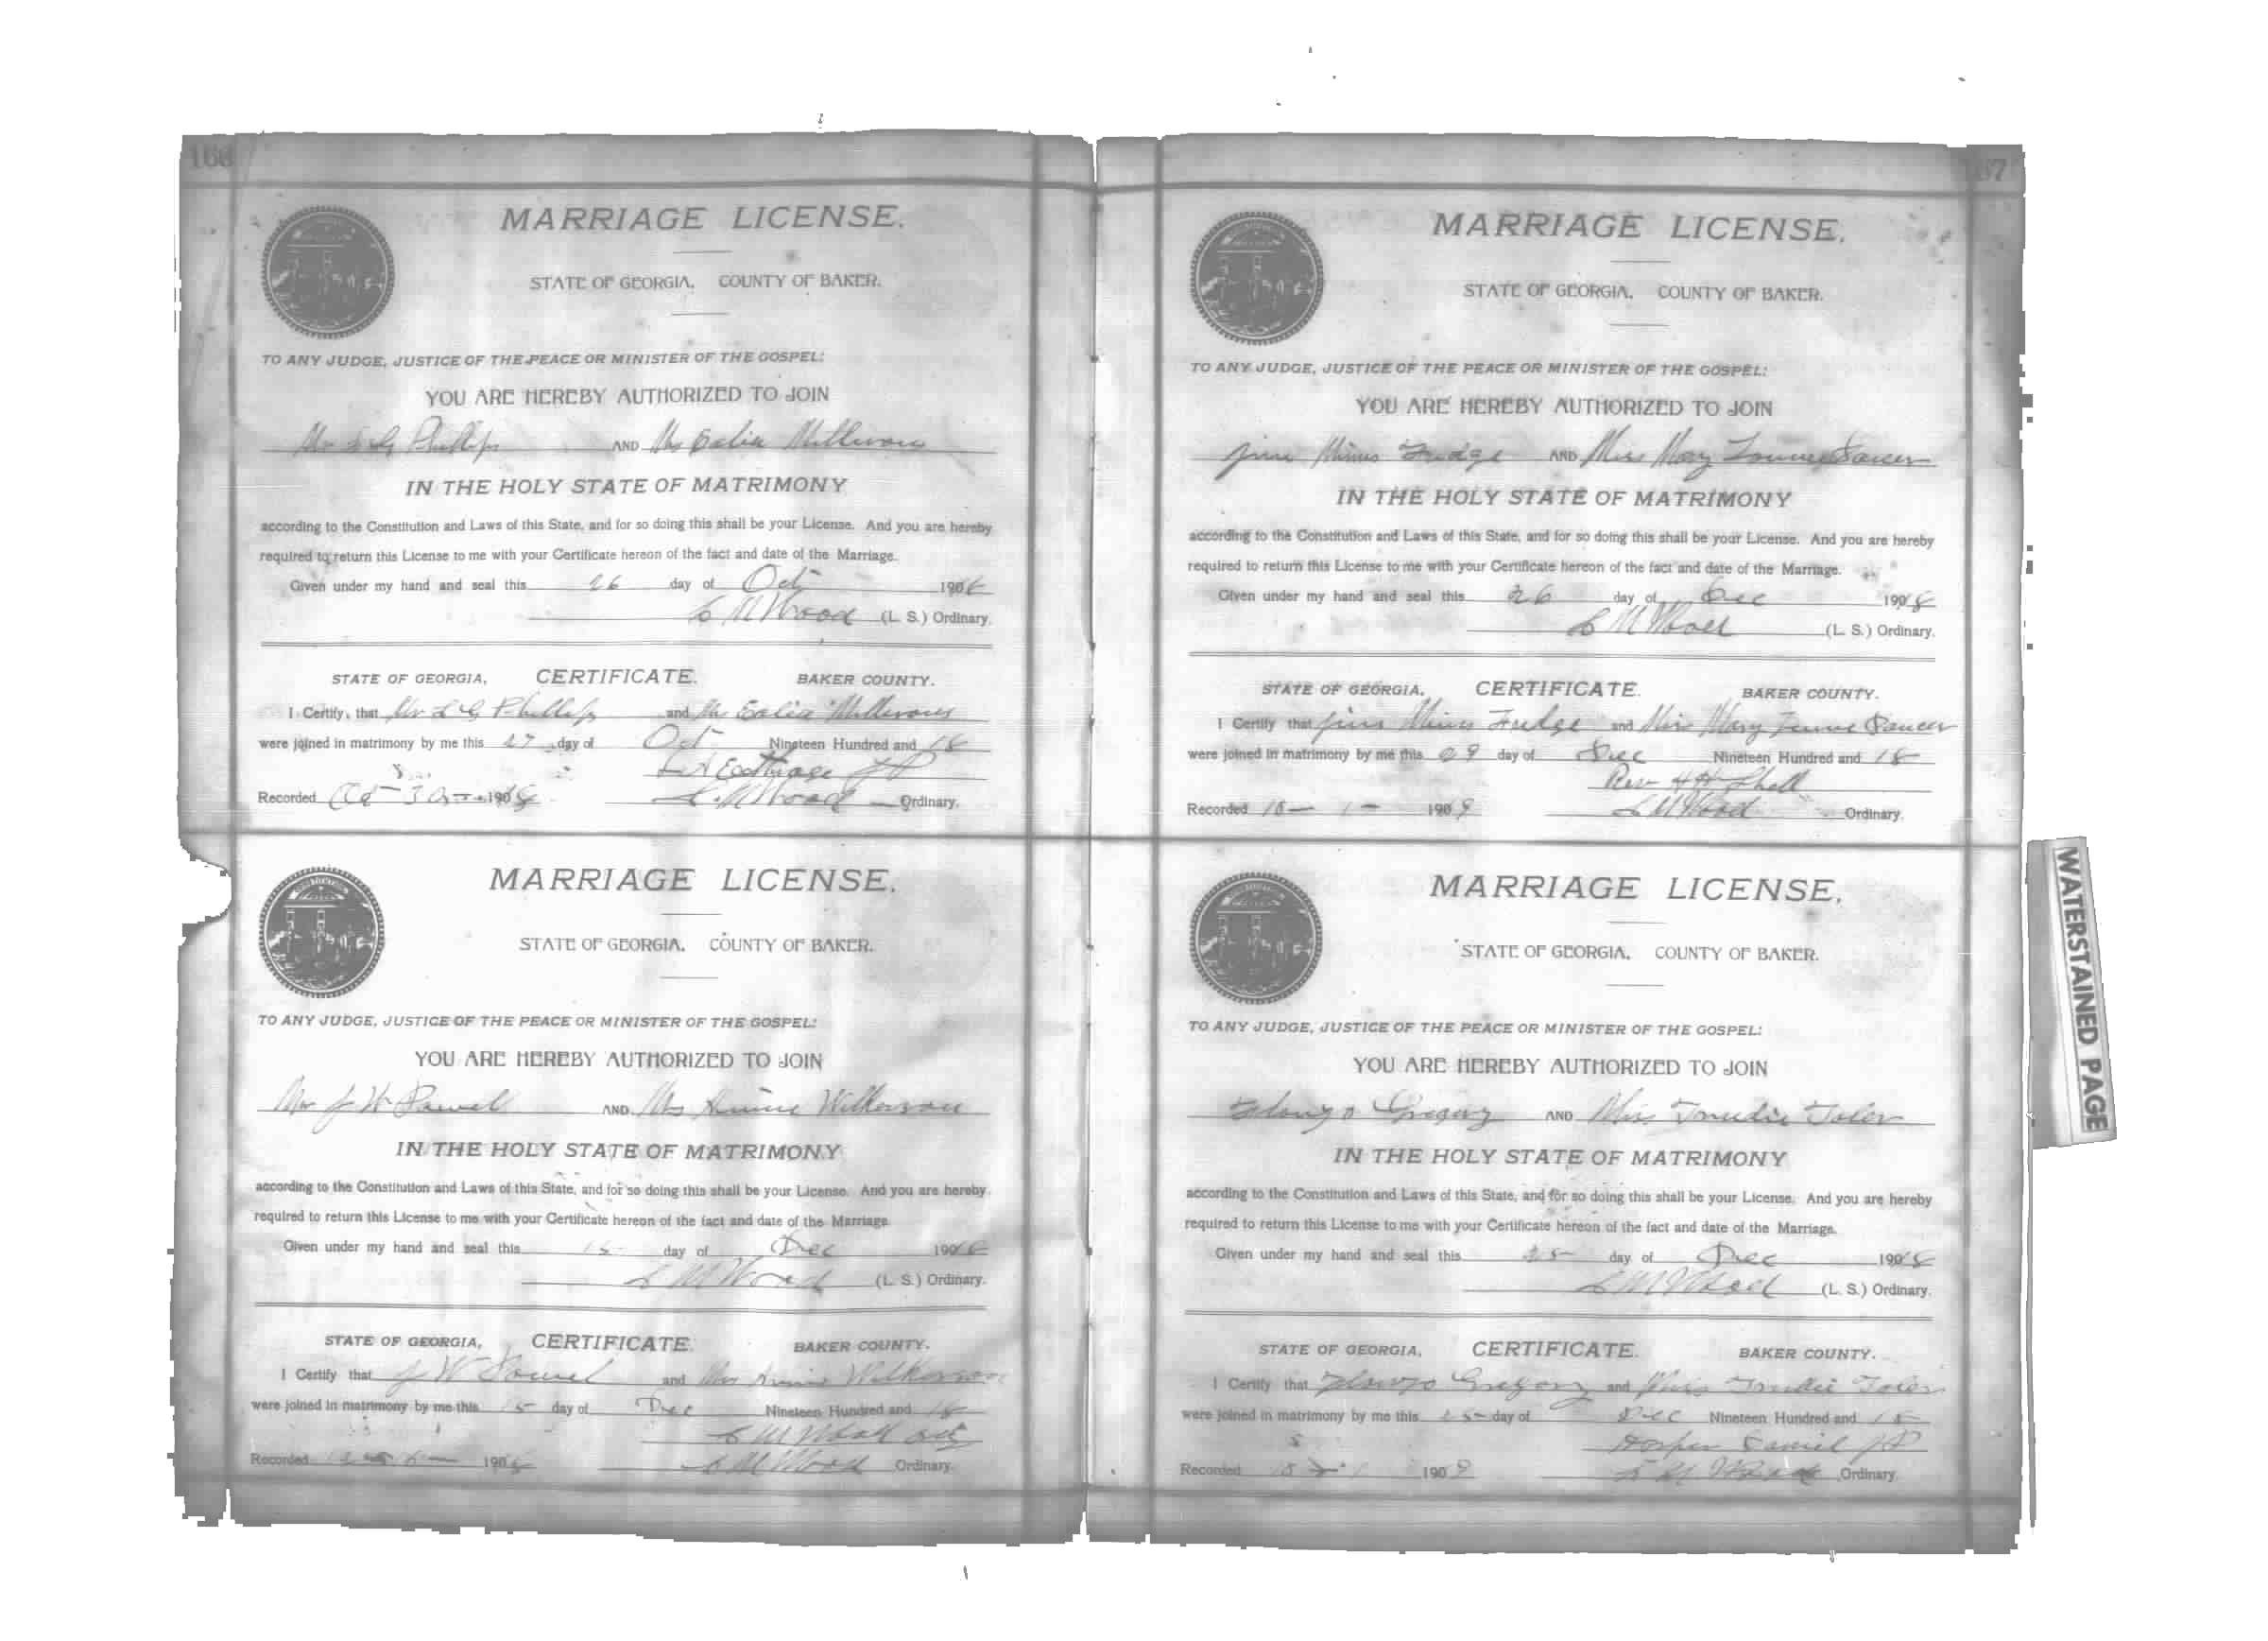 166
MARRIAGE LICENSE.
STATE OF GEORGIA, COUNTY OF BAKER.
TO ANY JUDGE, JUSTICE OF THE PEACE OR MINISTER OF THE GOSPEL:
YOU ARE HEREBY AUTHORIZED TO JOIN
Mr Phillips AND
IN THE HOLY STATE OF MATRIMONY
according to the Constitution and Laws of this State, and for so doing this shall be your License. And you are hereby
required to return this License to me with your Certificate hereon of the fact and date of the Marriage.
Given under my hand and seal this 26 day of Oct 190
Wood (L. S.) Ordinary.
STATE OF GEORGIA, CERTIFICATE. BAKER COUNTY.
I Certify, that Mr L G Phillips and
were joined in matrimony by me this 27 day of Oct Nineteen Hundred and 18
JP
Recorded Oct 190 Wood Ordinary.
MARRIAGE LICENSE.
STATE OF GEORGIA, COUNTY OF BAKER.
TO ANY JUDGE, JUSTICE OF THE PEACE OR MINISTER OF THE GOSPEL:
YOU ARE HEREBY AUTHORIZED TO JOIN
Mr J W Powel AND Annie Wilkerson
IN THE HOLY STATE OF MATRIMONY
according to the Constitution and Laws of this State, and for so doing this shall be your License. And you are hereby
required to return this License to me with your Certificate hereon of the fact and date of the Marriage.
Given under my hand and seal this 15 day of Dec 190
Wood (L. S.) Ordinary.
STATE OF GEORGIA, CERTIFICATE. BAKER COUNTY.
I Certify that J W Powel and Annie Wilkerson
were joined in matrimony by me this 15 day of Dec Nineteen Hundred and 18
Wood
Recorded 190 Wood Ordinary.
167
MARRIAGE LICENSE.
STATE OF GEORGIA, COUNTY OF BAKER.
TO ANY JUDGE, JUSTICE OF THE PEACE OR MINISTER OF THE GOSPEL:
YOU ARE HEREBY AUTHORIZED TO JOIN
Jim Mims Fudge AND Miss Mary
IN THE HOLY STATE OF MATRIMONY
according to the Constitution and Laws of this State, and for so doing this shall be your License. And you are hereby
required to return this License to me with your Certificate hereon of the fact and date of the Marriage.
Given under my hand and seal this 26 day of Dec 190
Wood (L. S.) Ordinary.
STATE OF GEORGIA, CERTIFICATE. BAKER COUNTY.
I Certify that Jim Mims Fudge and Miss Mary
were joined in matrimony by me this 29 day of Dec Nineteen Hundred and 18
Rev H H Shell
Recorded 1909 Wood Ordinary.
MARRIAGE LICENSE.
STATE OF GEORGIA, COUNTY OF BAKER.
TO ANY JUDGE, JUSTICE OF THE PEACE OR MINISTER OF THE GOSPEL:
YOU ARE HEREBY AUTHORIZED TO JOIN
Alonzo Gregory AND Miss Trudie Toler
IN THE HOLY STATE OF MATRIMONY
according to the Constitution and Laws of this State, and for so doing this shall be your License. And you are hereby
required to return this License to me with your Certificate hereon of the fact and date of the Marriage.
Given under my hand and seal this 25 day of Dec 190
Wood (L. S.) Ordinary.
STATE OF GEORGIA, CERTIFICATE. BAKER COUNTY.
I Certify that Alonzo Gregory and Miss Trudie Toler
were joined in matrimony by me this 25 day of Dec Nineteen Hundred and 18
Daniel JP
Recorded 1909 Wood Ordinary.
WATERSTAINED PAGE